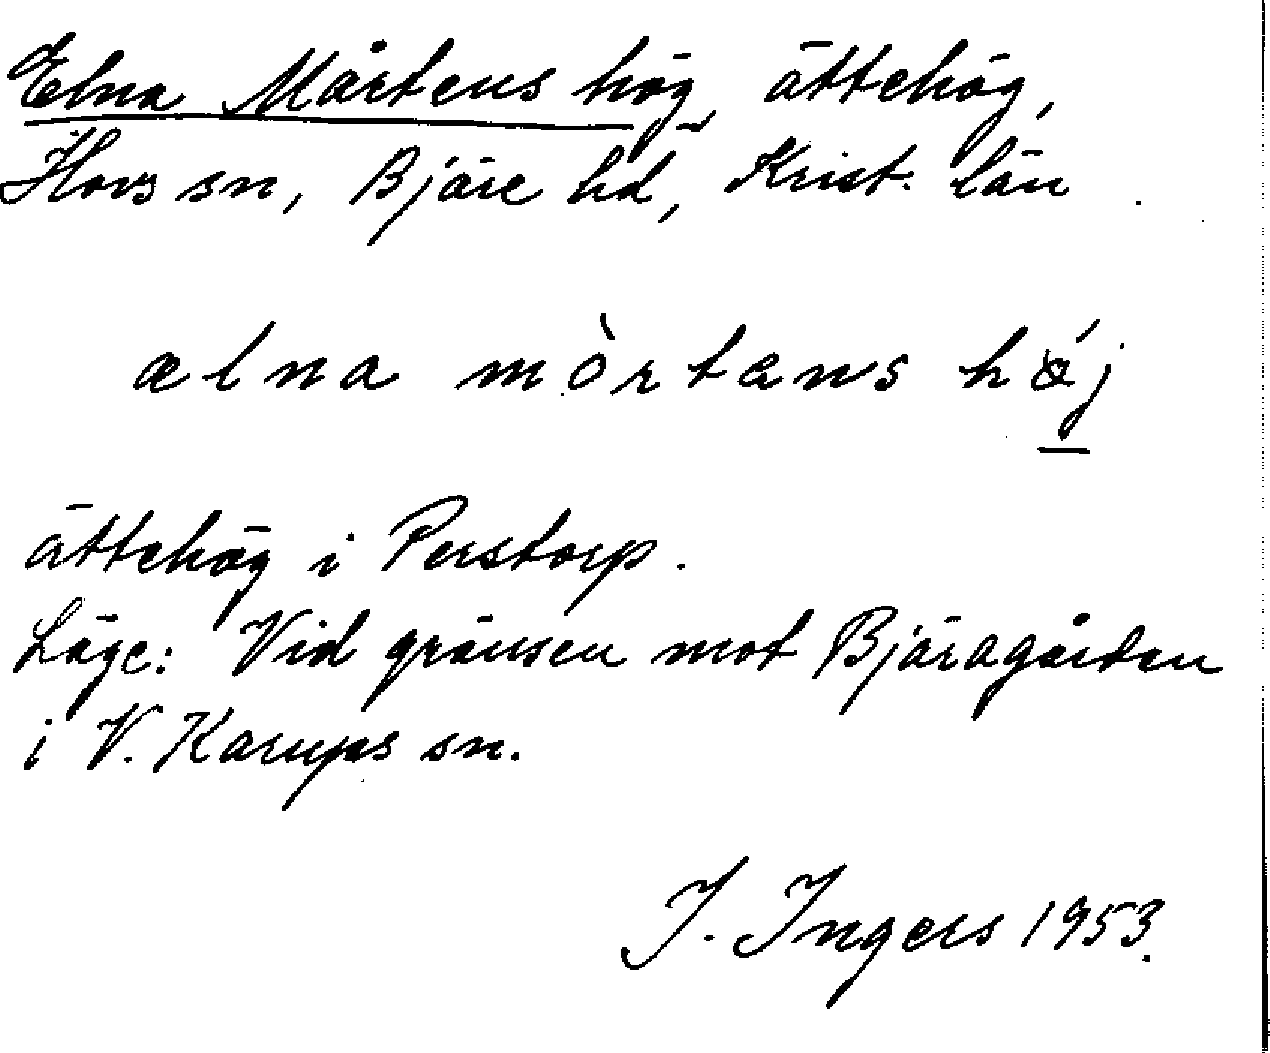 Elna Mårtens hög, ättehög,
Hovs sn, Bjäre hd, Krist. län.
ælna mòrtæns hǿj
ättehög i Perstorp.
Läge: Vid gränsen mot Bjäragården
i V. Karups sn.
I. Ingers 1953.